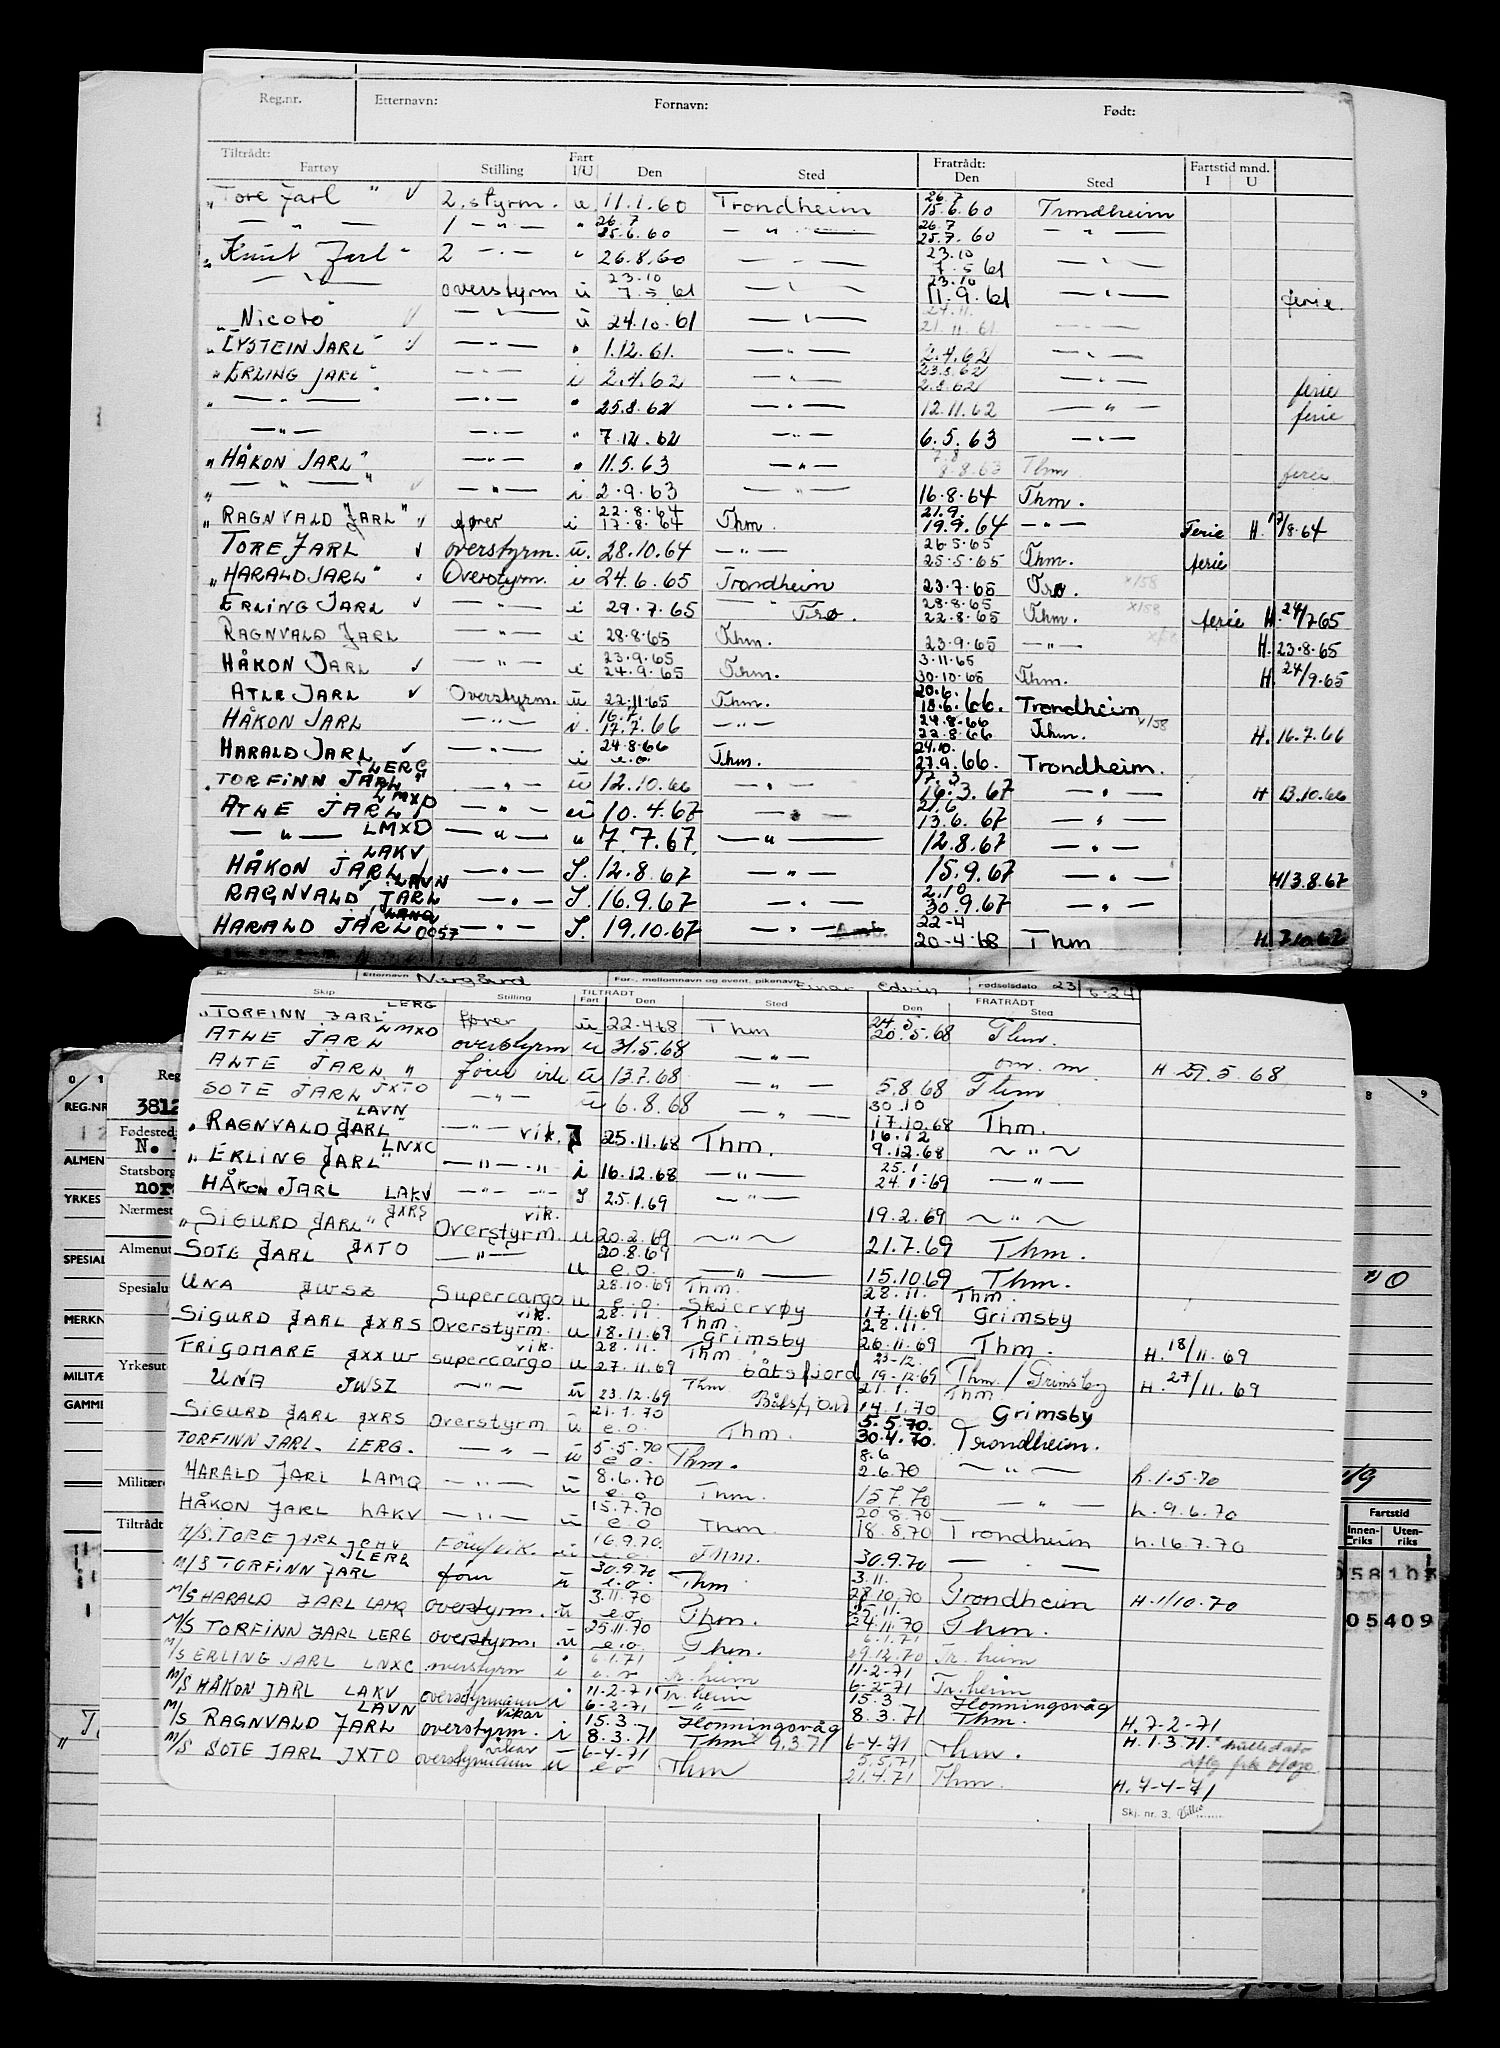 Reg.nr. Etternavn: Fornavn: Født:
Tiltrådt: Fartøy Stilling Fart I/U Den Sted Fratrådt: Den Sted Fartstid mnd. I U
"Tore Jarl" ✓ 2. styrm. u 11.1.60 Trondheim 26.7 15.6.60 Trondheim
— " — 1 — " — " 26.7 25.6.60 — " — 26.7 25.7.60 — " —
"Knut Jarl" 2 — " — " 26.8.60 — " — 23.10 7.5 61 — " —
— " — overstyrm u 23.10 7.5 61 — " — 23.10 11.9.61 — " — ferie
"Nicoto" ✓ — " — u 24.10.61 — " — 24.11. 21.11.61 — " —
"EYSTEIN JARL" ✓ — " — " 1.12.61. — " — 2.4.62 — " —
"ERLING JARL" — " — i 2.4.62 — " — 23.8.62 2.8.62 — " — ferie
" — " — — " — " 25.8.62 — " — 12.11.62 — " — ferie
— " — — " — " 7.12.62 — " — 6.5.63 — " —
"HÅKON JARL" — " — " 11.5.63 — " — 7.8 8.8.63 Thm ferie
" — " — " ✓ — " — i 2.9.63 — " — 16.8.64 Thm.
"RAGNVALD JARL" ✓ fører i 22.8.64 17.8.64 Thm. 21.9. 19.9.64 — " — Ferie H. 17/8.64
TORE JARL ✓ overstyrm. u. 28.10.64 — " — 26.5.65 25.5.65 Thm. ferie
"HARALD JARL" ✓ Overstyrm. i 24.6.65 Trondheim 23.7.65 Trø. x/58
ERLING JARL ✓ — " — i 29.7.65 — " — Trø. 28.8.65 22.8.65 Thm. x/58 ferie H. 24/7-65
RAGNVALD JARL — " — i 28.8.65 Thm. 23.9.65 — " — H. 23.8.65
HÅKON JARL ✓ — " — i 23.9.65 24.9.65 Thm. 3.11.65 30.10.65 Thm. H. 24/9.65
ATLE JARL ✓ Overstyrm. u 22.11.65 Thm. 20.6. 18.6.66. Trondheim
HÅKON JARL — " — i. 16.7. 17.7.66 — " — 24.8.66 22.8.66 Thm. x/58 H. 16.7.66
HARALD JARL ✓ — " — i 24.8.66 e.o. Thm. 24.10. 27.9.66. Trondheim.
"TORFINN JARL" LERG — " — u 12.10.66 — " — 17.3 16.3.67 — " — H 13.10.66
ATLE JARL LMXD — " — u 10.4.67 — " — 21.6 13.6.67 — " —
— " — LMXD — " — " 7.7.67. — " — 12.8.67 — " —
HÅKON JARL LAKV — " — I. 12.8.67 — " — 15.9.67 — " — H 13.8.67
RAGNVALD JARL LAVN — " — I. 16.9.67 — " — 2.10 30.9.67 — " —
HARALD JARL 0057 — " — I. 19.10.67 — " — 22-4 20-4-68 Thm H. 7.10.67
Etternavn Nergård For-, mellomnavn og event. pikenavn Einar Edvin Fødselsdato 23/6-24
Skip Stilling TILTRÅDT Fart Den Sted Den FRATRÅDT Sted
"TORFINN JARL" LERG fører u 22.4.68 Thm 24.5 20.5.68 Thm.
ATLE JARL LMXD overstyrm u 31.5.68 — " — om. m. H 29.5.68
ALTE JARL " fører vik u 13.7.68 — " — 5.8.68 Thm
SOTE JARL JXTO — " — u 6.8.68 — " — 30.10 17.10.68 Thm.
"RAGNVALD JARL" LAVN — " — vik. I 25.11.68 Thm. 16.12 9.12.68 ~ " ~
"ERLING JARL" LNXC — " — " i 16.12.68 — " — 25.1. 24.1.69 — " —
HÅKON JARL LAKV — " — " — I 25.1.69 — " — 19.2.69 ~ " ~
"SIGURD JARL" JXRS Overstyrm. vik. u 20.2.69 ~ " ~ 21.7.69 Thm.
SOTE JARL JXTO — " — u 20.8.69 e.o. — " — 15.10.69 Thm.
UNA JWSZ Supercargo u 28.10.69 e.o. Thm. Skjervøy 28.11. 17.11.69 Thm. Grimsby
SIGURD JARL JXRS Overstyrm. vik. u 28.11. 18.11.69 Thm. Grimsby 28.11. 26.11.69 Thm. H. 18/11.69
FRIGOMARE JXXW supercargo vik. u 28.11. 27.11.69 Thm. båtsfjord 23-12. 19-12-69 Thm./Grimsby H. 27/11.69
UNA JWSZ — " — u 23.12.69 Thm. 21.1. 14.1.70 Thm Grimsby
SIGURD JARL JXRS Overstyrm u 21.1.70 e.o. Thm. 5.5.70. 30.4.70. Trondheim.
TORFINN JARL. LERG. — " — u 5.5.70 e.o. Thm. 8.6 2.6.70 — " — h. 1.5.70
HARALD JARL LAMQ — " — u 8.6.70 e.o Thm. 15.7.70 — " — h. 9.6.70
HÅKON JARL LAKV — " — u 15.7.70 e.o Thm. 20.8.70 18.8.70 Trondheim h. 16.7.70
M/S. TORE JARL Fører/vik. u 16.9.70. e.o. Thm. 30.9.70 — " —
M/S TORFINN JARL LERG fører u 30.9.70 e.o. Thm 3.11. 28.10.70 Trondheim H. 1/10.70
M/S HARALD JARL LAMQ overstyrm. u 3.11.70 e.o Thm. 25.11. 24.11.70 Thm.
M/S TORFINN JARL LERG overstyrm. u 25.11.70 e.o. Thm. 6.1.71 29.12.70 Tr.heim
M/S ERLING JARL LNXC overstyrm i 6.1.71 e.o Tr.heim 11-2-71 6-2-71 Tr.heim
M/S HÅKON JARL LAKV overstyrmann i 11-2-71 6-2-71 Tr.heim — " — 15.3 8.3.71 Honningsvåg Thm. H. 7-2-71
M/S RAGNVALD JARL LAVN overstyrm. vikar i 15.3. 8.3.71 Honningsvåg Thm 9.3.71 6-4-71 Thm. H. 1.3.71.
M/S SOTE JARL JXTO overstyrmann vikar u 6-4-71 e o Thm 5.5.71 21.4.71 Thm. H. 7-4-71
Skj. nr. 3.
0 1 8 9
REG.NR
Reg
3812
Fødested
N.
Statsborg
nor
Nærmest
Almenut
Spesialu
Yrkesut
Militær
Tiltrådt
ALMEN
YRKES
SPESIAL
MERKN
MILITÆ
GAMM
Fartstid
Innen-riks Uten-riks
05409